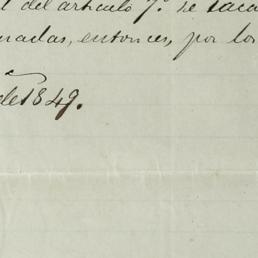 l del artículo 7.º se saca
nadas, entonces, por los
de 1849.